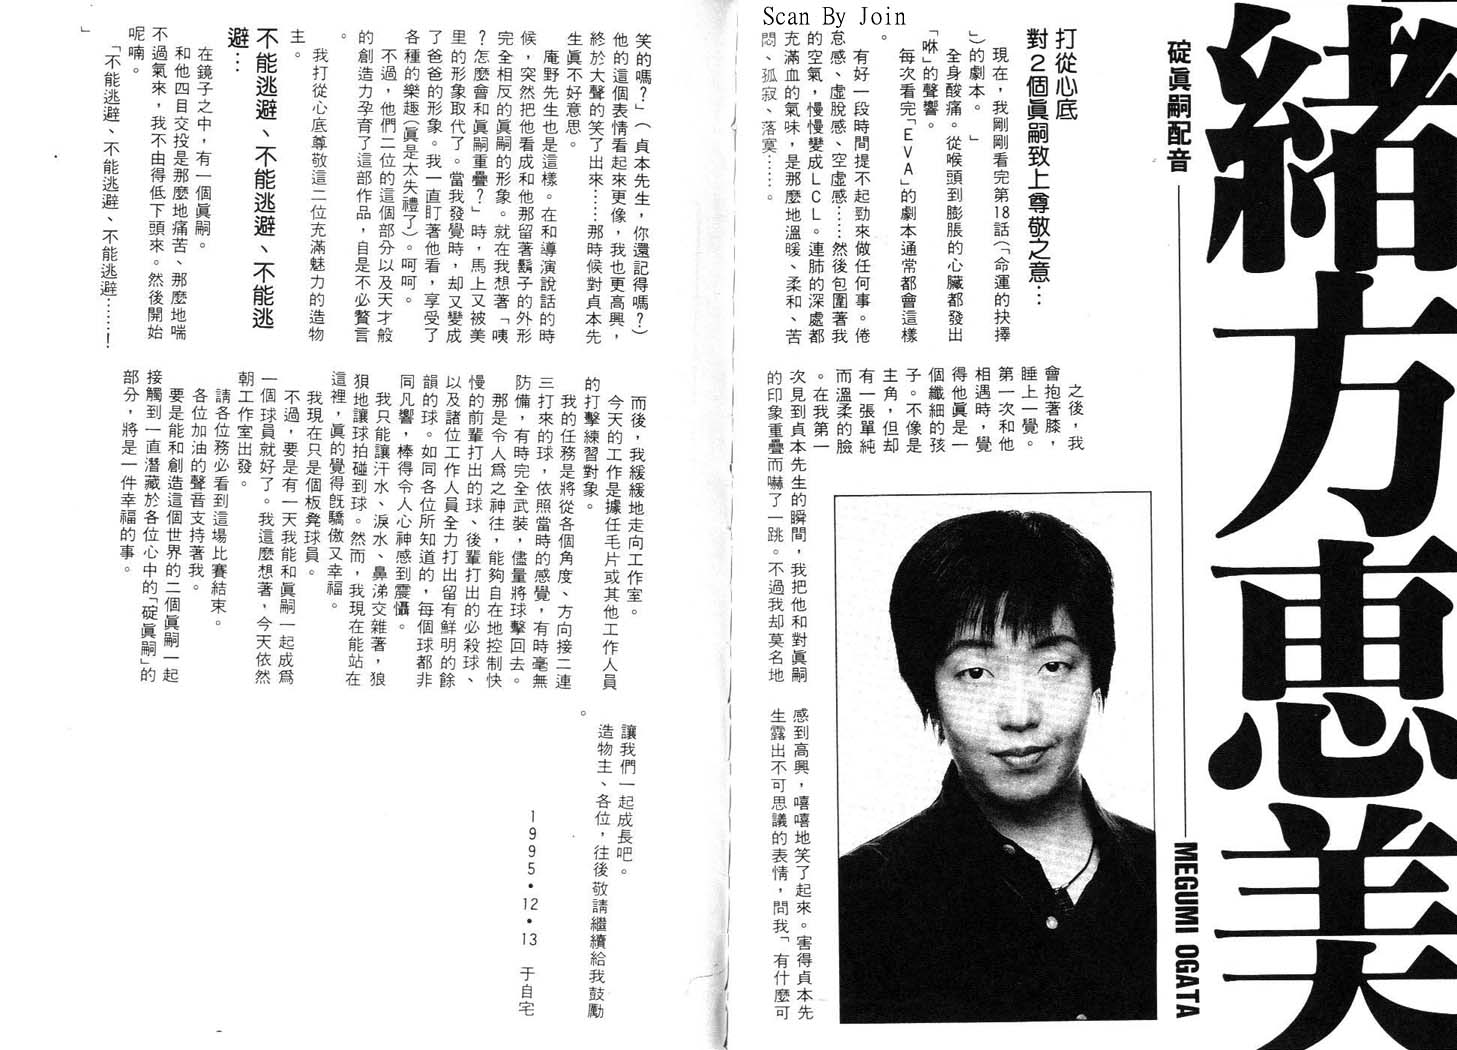 Scan By Join
緒方恵美
碇眞嗣配音
MEGUMI OGATA
打從心底
對２個眞嗣致上尊敬之意…
現在，我剛剛看完第18話(「命運的抉擇
」)的劇本。
全身酸痛。從喉頭到膨脹的心臟都發出
「咻」的聲響。
每次看完「EVA」的劇本通常都會這樣
。
有好一段時間提不起勁來做任何事。倦
怠感、虛脫感、空虛感……然後包圍著我
的空氣，慢慢變成LCL。連肺的深處都
充滿血的氣味，是那麼地溫暖、柔和、苦
悶、孤寂、落寞……。
之後，我
會抱著膝，
睡上一覺。
第一次和他
相遇時，覺
得他眞是一
個纖細的孩
子。不像是
主角，但却
有一張單純
而溫柔的臉
。在我第一
次見到貞本先生的瞬間，我把他和對眞嗣
的印象重疊而嚇了一跳。不過我却莫名地
感到高興，嘻嘻地笑了起來。害得貞本先
生露出不可思議的表情，問我「有什麼可
笑的嗎？」(貞本先生，你還記得嗎？)
他的這個表情看起來更像，我也更高興，
終於大聲的笑了出來……那時候對貞本先
生眞不好意思。
庵野先生也是這樣。在和導演說話的時
候，突然把他看成和他那留著鬍子的外形
完全相反的眞嗣的形象。就在我想著「咦
？怎麼會和眞嗣重疊？」時，馬上又被美
里的形象取代了。當我發覺時，却又變成
了爸爸的形象。我一直盯著他看，享受了
各種的樂趣(眞是太失禮了)。呵呵。
不過，他們二位的這個部分以及天才般
的創造力孕育了這部作品，自是不必贅言
。
我打從心底尊敬這二位充滿魅力的造物
主。
不能逃避、不能逃避、不能逃
避…
在鏡子之中，有一個眞嗣。
和他四目交投是那麼地痛苦、那麼地喘
不過氣來，我不由得低下頭來。然後開始
呢喃。
「不能逃避、不能逃避、不能逃避……！
」
而後，我緩緩地走向工作室。
今天的工作是據任毛片或其他工作人員
的打擊練習對象。
我的任務是將從各個角度、方向接二連
三打來的球，依照當時的感覺，有時毫無
防備，有時完全武裝，儘量將球擊回去。
那是令人爲之神往，能夠自在地控制快
慢的前輩打出的球、後輩打出的必殺球、
以及諸位工作人員全力打出留有鮮明的餘
韻的球。如同各位所知道的，每個球都非
同凡響，棒得令人心神感到震懾。
我只能讓汗水、淚水、鼻涕交雜著，狼
狽地讓球拍碰到球。然而，我現在能站在
這裡，眞的覺得旣驕傲又幸福。
我現在只是個板凳球員。
不過，要是有一天我能和眞嗣一起成爲
一個球員就好了。我這麼想著，今天依然
朝工作室出發。
請各位務必看到這場比賽結束。
各位加油的聲音支持著我。
要是能和創造這個世界的二個眞嗣一起
接觸到一直潛藏於各位心中的「碇眞嗣」的
部分，將是一件幸福的事。
讓我們一起成長吧。
造物主、各位，往後敬請繼續給我鼓勵
。
1995•12•13　于自宅